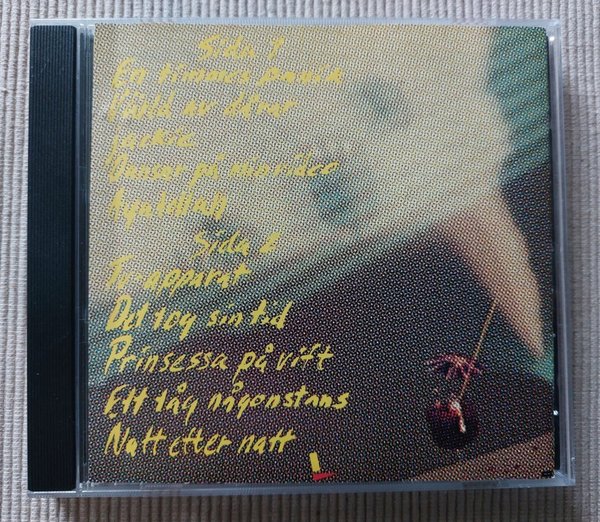 Sida 1
En timmes panik
Värld av dårar
Jackie
Dansar på min video
Ayatollah
Sida 2
TV-apparat
Det tog sin tid
Prinsessa på vift
Ett tåg någonstans
Natt efter natt